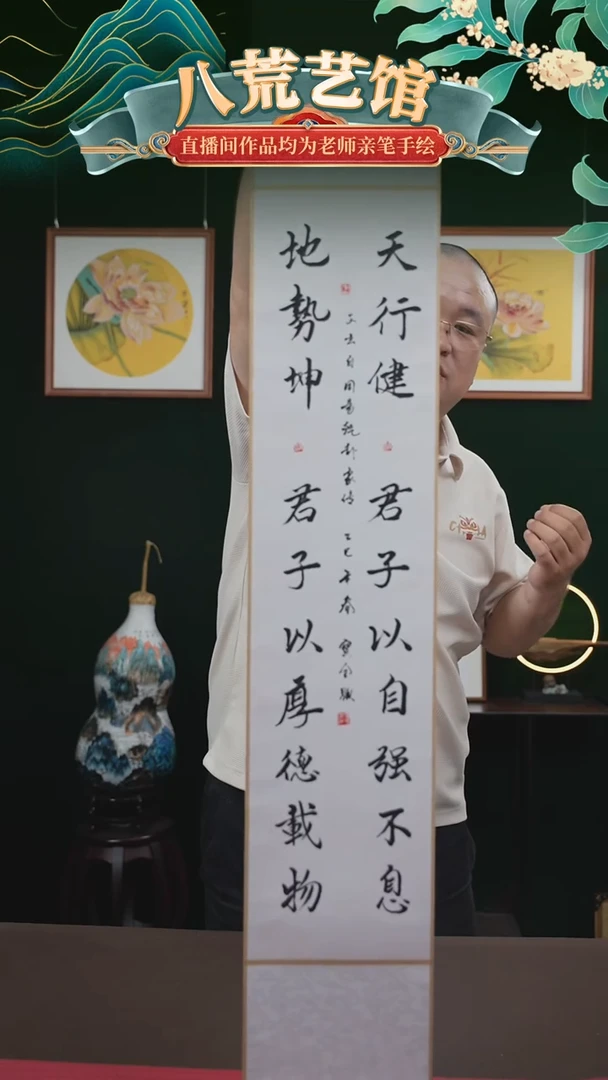 八荒艺馆
直播间作品均为老师亲笔手绘
天行健 君子以自强不息
地勢坤 君子以厚德載物